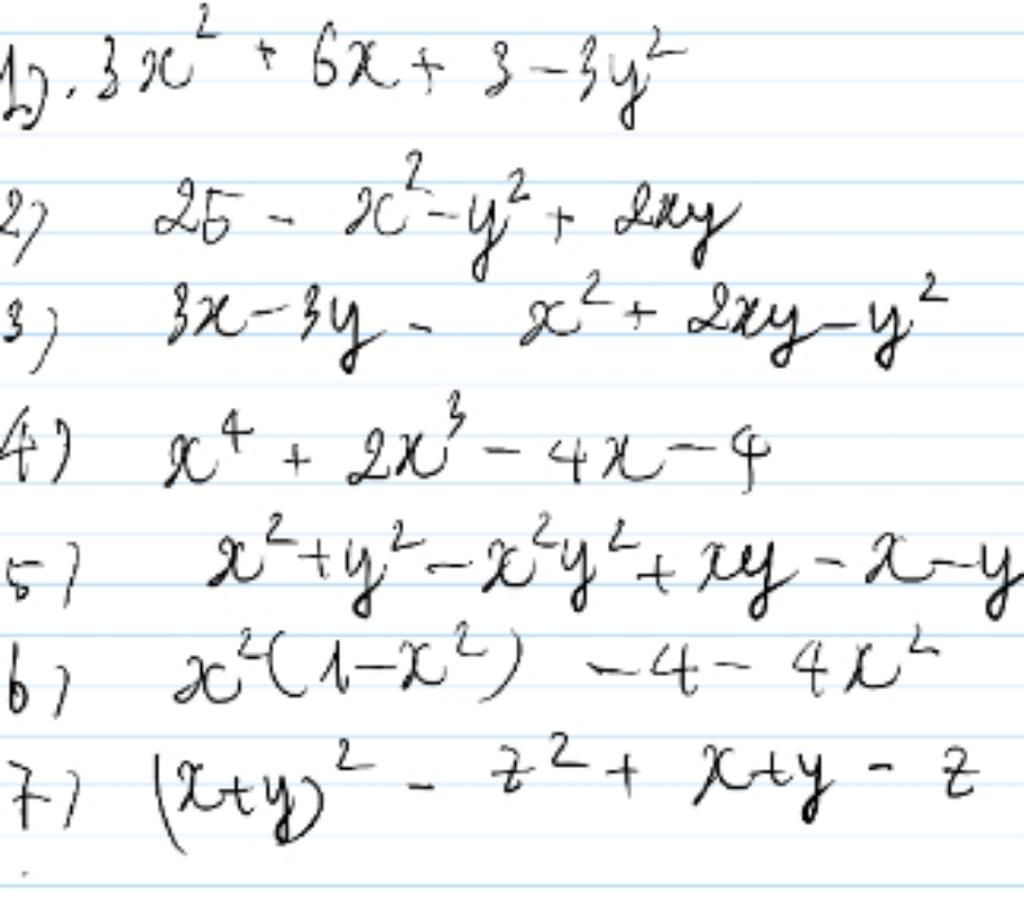 1). 3x² + 6x + 3 - 3y²
2) 25 - x² - y² + 2xy
3) 3x - 3y - x² + 2xy - y²
4) x⁴ + 2x³ - 4x - 4
5) x² + y² - x²y² + xy - x - y
6) x²(1 - x²) - 4 - 4x²
7) (x + y)² - z² + x + y - z